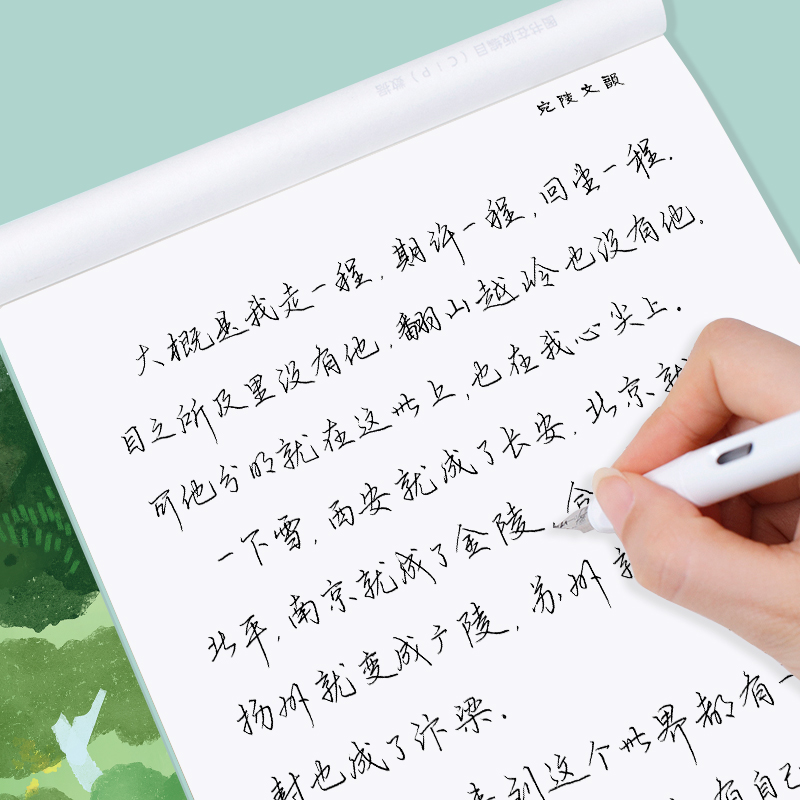 图书在版编目（CIP）数据
陵文韻
大概是我走一程，期许一程，回一程.
目之所及里没有他，翻山越岭也没有他。
可他分明就在这世上，也在我心尖上.
一下雪，西安就成了长安，北京就
北平，南京就成了金陵，合
扬州就变成广陵，苏州
封也成了汴梁.
到这个世界都有一
有自己